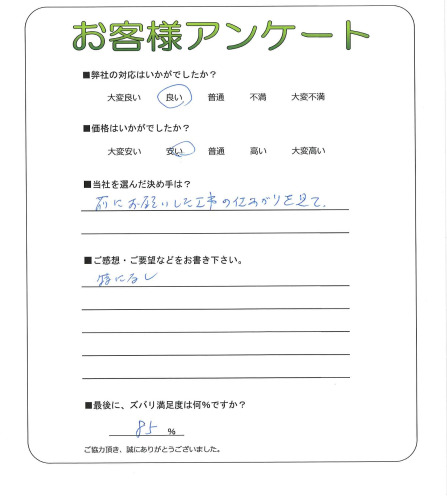 お客様アンケート
■弊社の対応はいかがでしたか？
大変良い 良い 普通 不満 大変不満
■価格はいかがでしたか？
大変安い 安い 普通 高い 大変高い
■当社を選んだ決め手は？
前にお願いした工事の仕上がりを見て.
■ご感想・ご要望などをお書き下さい。
特になし
■最後に、ズバリ満足度は何%ですか？
85 %
ご協力頂き、誠にありがとうございました。